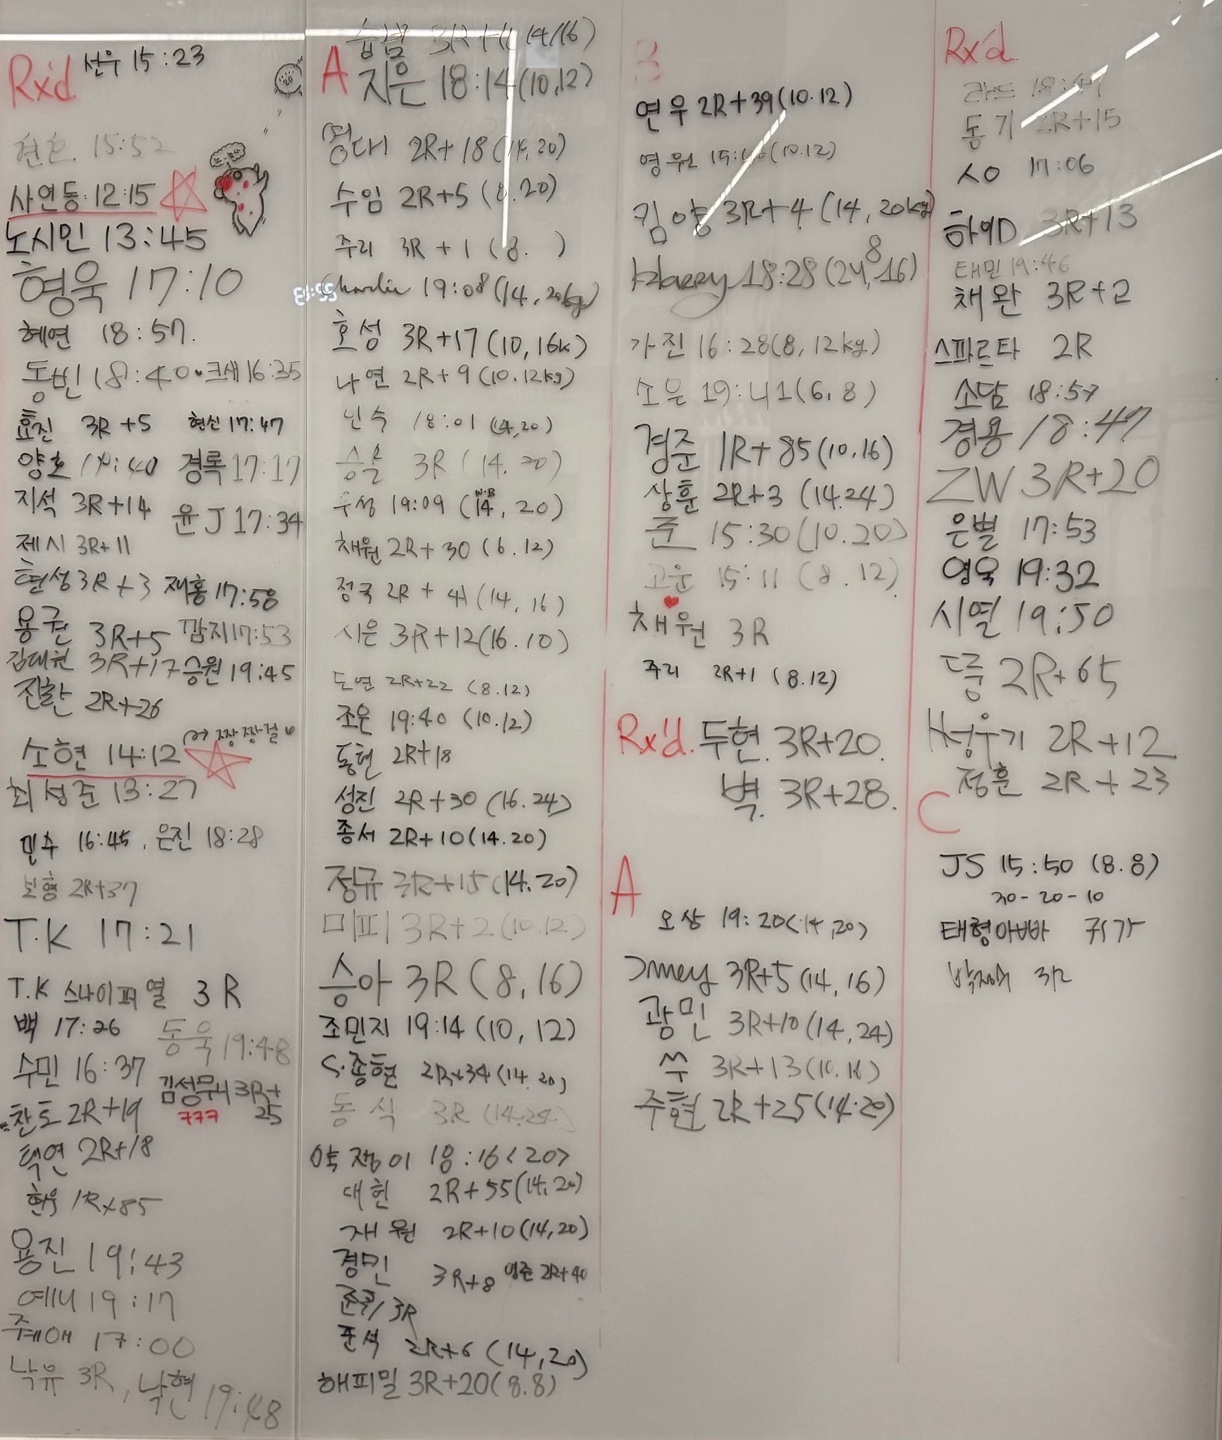 Rx'd 선우 15:23
현호 15:52
사연동 12:15
노시민 13:45
형욱 17:10
혜연 18:57.
동빈 18:40 • 크세 16:35
효진 3R+5 현신 17:47
양호 19:40 경록 17:17
지석 3R+14 윤J 17:34
제시 3R+11
현성 3R+3 재홍 17:58
용권 3R+5 깜지 17:53
김대현 3R+17 승원 19:45
진환 2R+26
소현 14:12 짱짱걸
최성준 13:27
민수 16:45, 은진 18:28
보형 2R+37
T.K 17:21
T.K 스나이퍼 열 3R
백 17:26 동욱 19:48
수민 16:37 김성무니 3R+25
찬호 2R+19 ㅋㅋㅋ
택연 2R+18
환욱 1R+85
용진 19:43
예니 19:17
쥬애 17:00
낙유 3R, 낙현 19:48
A 슬범 3R+11 (14/16)
지은 18:14 (10,12)
명대 2R+18 (14,20)
수임 2R+5 (8.20)
주리 3R+1 (8. )
Charlie 19:08 (14,20kg)
호성 3R+17 (10,16k)
나연 2R+9 (10.12kg)
민수 18:01 (14,20)
승올 3R (14.20)
우성 19:09 (14, 20)
채원 2R+30 (6.12)
정국 2R+41 (14, 16)
시은 3R+12 (16.10)
도연 2R+22 (8.12)
조은 19:40 (10.12)
동현 2R+18
성진 2R+30 (16.24)
종서 2R+10 (14.20)
정규 3R+15 (14.20)
미피 3R+2 (10.12)
승아 3R (8,16)
조민지 19:14 (10, 12)
S.종현 2R+34 (14.20)
동식 3R (14.24)
약쟁이 18:16 <20>
대현 2R+55 (14,20)
재원 2R+10 (14,20)
경민 3R+8 영준 2R+40
준쿠 / 3R
준석 2R+6 (14,20)
해피밀 3R+20 (8.8)
B
연우 2R+39 (10.12)
영원 15:46 (10.12)
킴양 3R+4 (14, 20kg)
Harry 18:28 (24, 16) 8
가진 16:28 (8, 12kg)
소은 19:41 (6,8)
경준 1R+85 (10.16)
상훈 2R+3 (14.24)
준 15:30 (10.20)
고운 15:11 (8.12)
채원 3R
주리 2R+1 (8.12)
Rx'd. 두현 3R+20.
벽 3R+28.
A
오상 19:20 (14,20)
Jmey 3R+5 (14, 16)
광민 3R+10 (14,24)
쑤 3R+13 (10.16)
주현 2R+25 (14.20)
Rx'd
18:47
동기 2R+15
17:06
하이D 3R+13
태민 19:46
채완 3R+2
스파르타 2R
소담 18:57
경용 18:47
ZW 3R+20
은별 17:53
영욱 19:32
시열 19:50
드룽 2R+65
H성우기 2R+12
정훈 2R+23
C
JS 15:50 (8.8)
30-20-10
태형아빠 귀가
3R